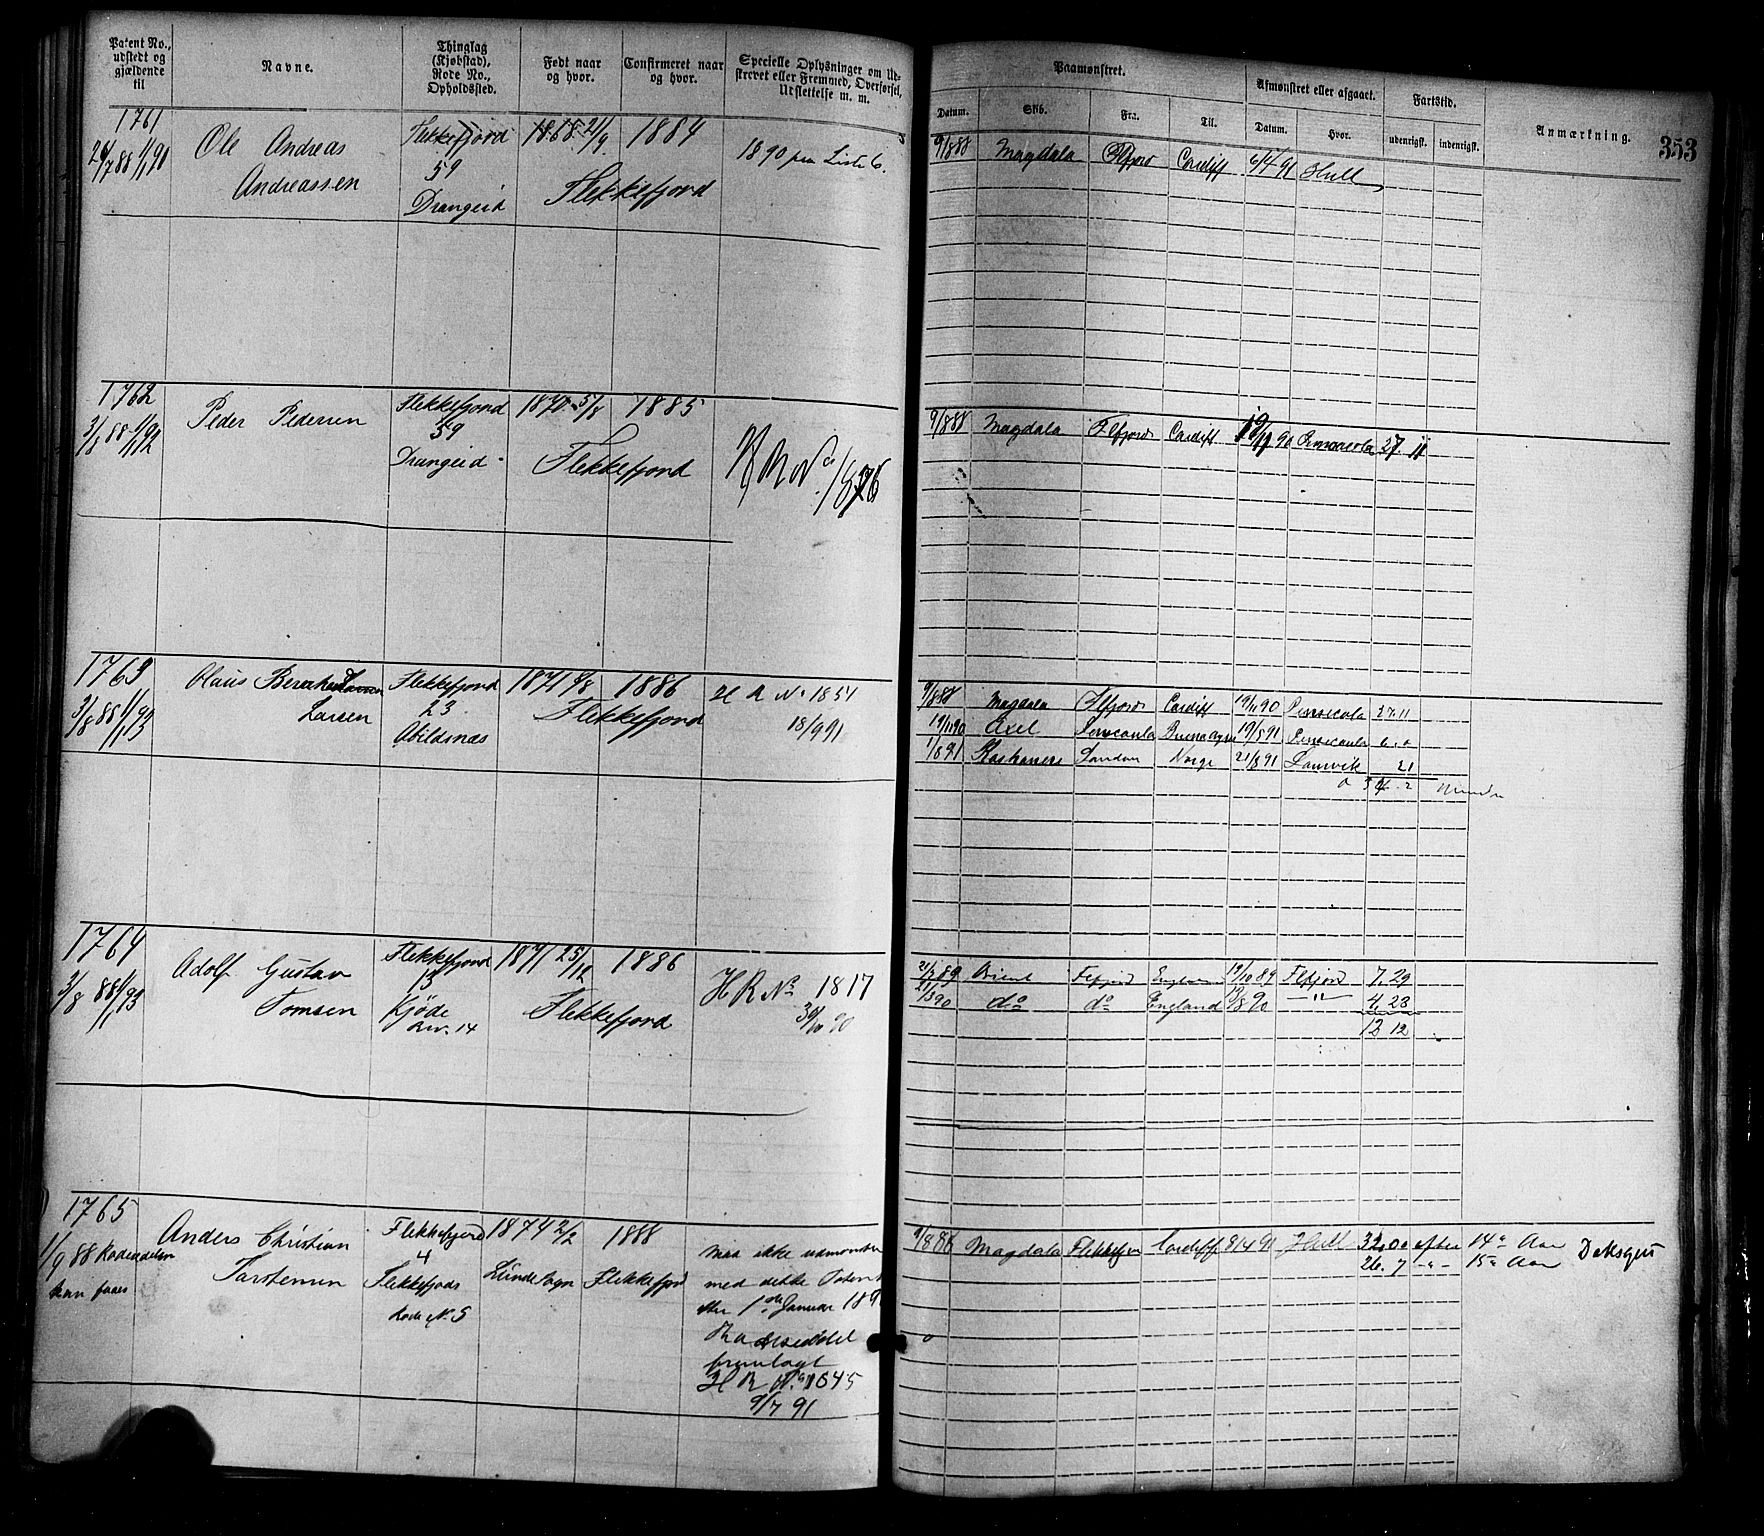 Patent No., udstedt og gjældende til
Navne.
Thinglag (Kjøbstad), Rode No., Opholdssted.
Født naar og hvor.
Confirmeret naar og hvor.
Specielle Oplysninger om Ud-
skrevet eller Fremmed, Overførsel,
Udslettelse m. m.
Paamønstret.
Afmønstret eller afgaaet.
Fartstid.
Anmærkning.
353
Datum.
Skib.
Fra.
Til.
Datum.
Hvor.
udenrigsk.
indenrigsk.
1761
Ole Andreas
Andreassen
Flekkefjord
59
Drangeid
1868 21/9
1884
Flekkefjord
1890 paa Liste 6.
9/8 88 Magdala Flfjord Cardiff 6/4 91 Hull
1762
3/8 88 1/1 92
Peder Pedersen
Flekkefjord
59
Drangeid
1870 5/8
1885
Flekkefjord
H R No 1876
9/8 88 Magdala Flfjord Cardiff 19/11 90 Pensacola 27 11
1763
3/8 88 1/1 93
Olaus
Larsen
Flekkefjord
23
Abildsnæs
1871 9/8
1886
Flekkefjord
H R No 1851
18/9 91
9/8 88 Magdala Flfjord Cardiff 19/11 90 Pensacola 27 11
19/11 90 Axel Pensacola Buenos Ayres 19/5 91 Pensacola 6 0
1/8 91 London Norge 21/8 91 21
34 2
1764
3/8 88 1/1 93
Adolf Gustav
Tomsen
Flekkefjord
13
Kjøde
Lnr. 14
1871 25/12
1886
Flekkefjord
H R No 1817
30/10 90
21/2 89 Orient Flfjord England 19/10 89 Flfjord 7 29
21/3 90 do do England 13/8 90 — " — 4 23
12 12
1765
1/9 88 Radeseddelen
kan faaes
Anders Christian
Torstensen
Flekkefjord
4
Flekkefjords
Rode No. 5
1874 2/2
Lunde sogn
1888
Flekkefjord
maa ikke udmønstres
med dette Patent
efter 1ste Januar 189
Radeseddel
fremlagt
H R No 1845
9/7 91
9/8 88 Magdala Flekkefjor Cardiff 8/4 91 Hull 32 00 efter 14de Aar
26 7 - " - 15de Aar